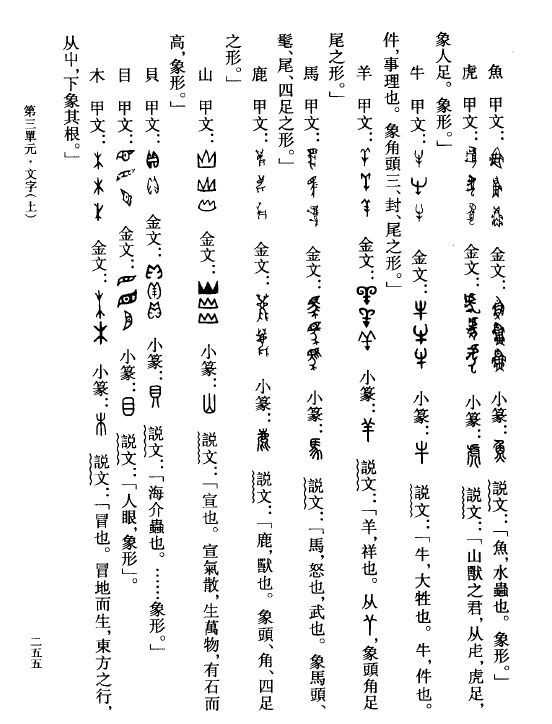 魚　甲文：　金文：　小篆：　説文：「魚，水蟲也。象形。」
虎　甲文：　金文：　小篆：　説文：「山獸之君，从虍，虎足，
象人足。象形。」
牛　甲文：　金文：　小篆：　説文：「牛，大牲也。牛，件也。
件，事理也。象角頭三、封、尾之形。」
羊　甲文：　金文：　小篆：　説文：「羊，祥也。从𦫳，象頭角足
尾之形。」
馬　甲文：　金文：　小篆：　説文：「馬，怒也，武也。象馬頭、
髦、尾、四足之形。」
鹿　甲文：　金文：　小篆：　説文：「鹿，獸也。象頭、角、四足
之形。」
山　甲文：　金文：　小篆：　説文：「宣也。宣氣散，生萬物，有石而
高，象形。」
貝　甲文：　金文：　小篆：　説文：「海介蟲也。……象形。」
目　甲文：　金文：　小篆：　説文：「人眼，象形」。
木　甲文：　金文：　小篆：　説文：「冒也。冒地而生，東方之行，
从屮，下象其根。」
第三單元·文字（上）
二五五